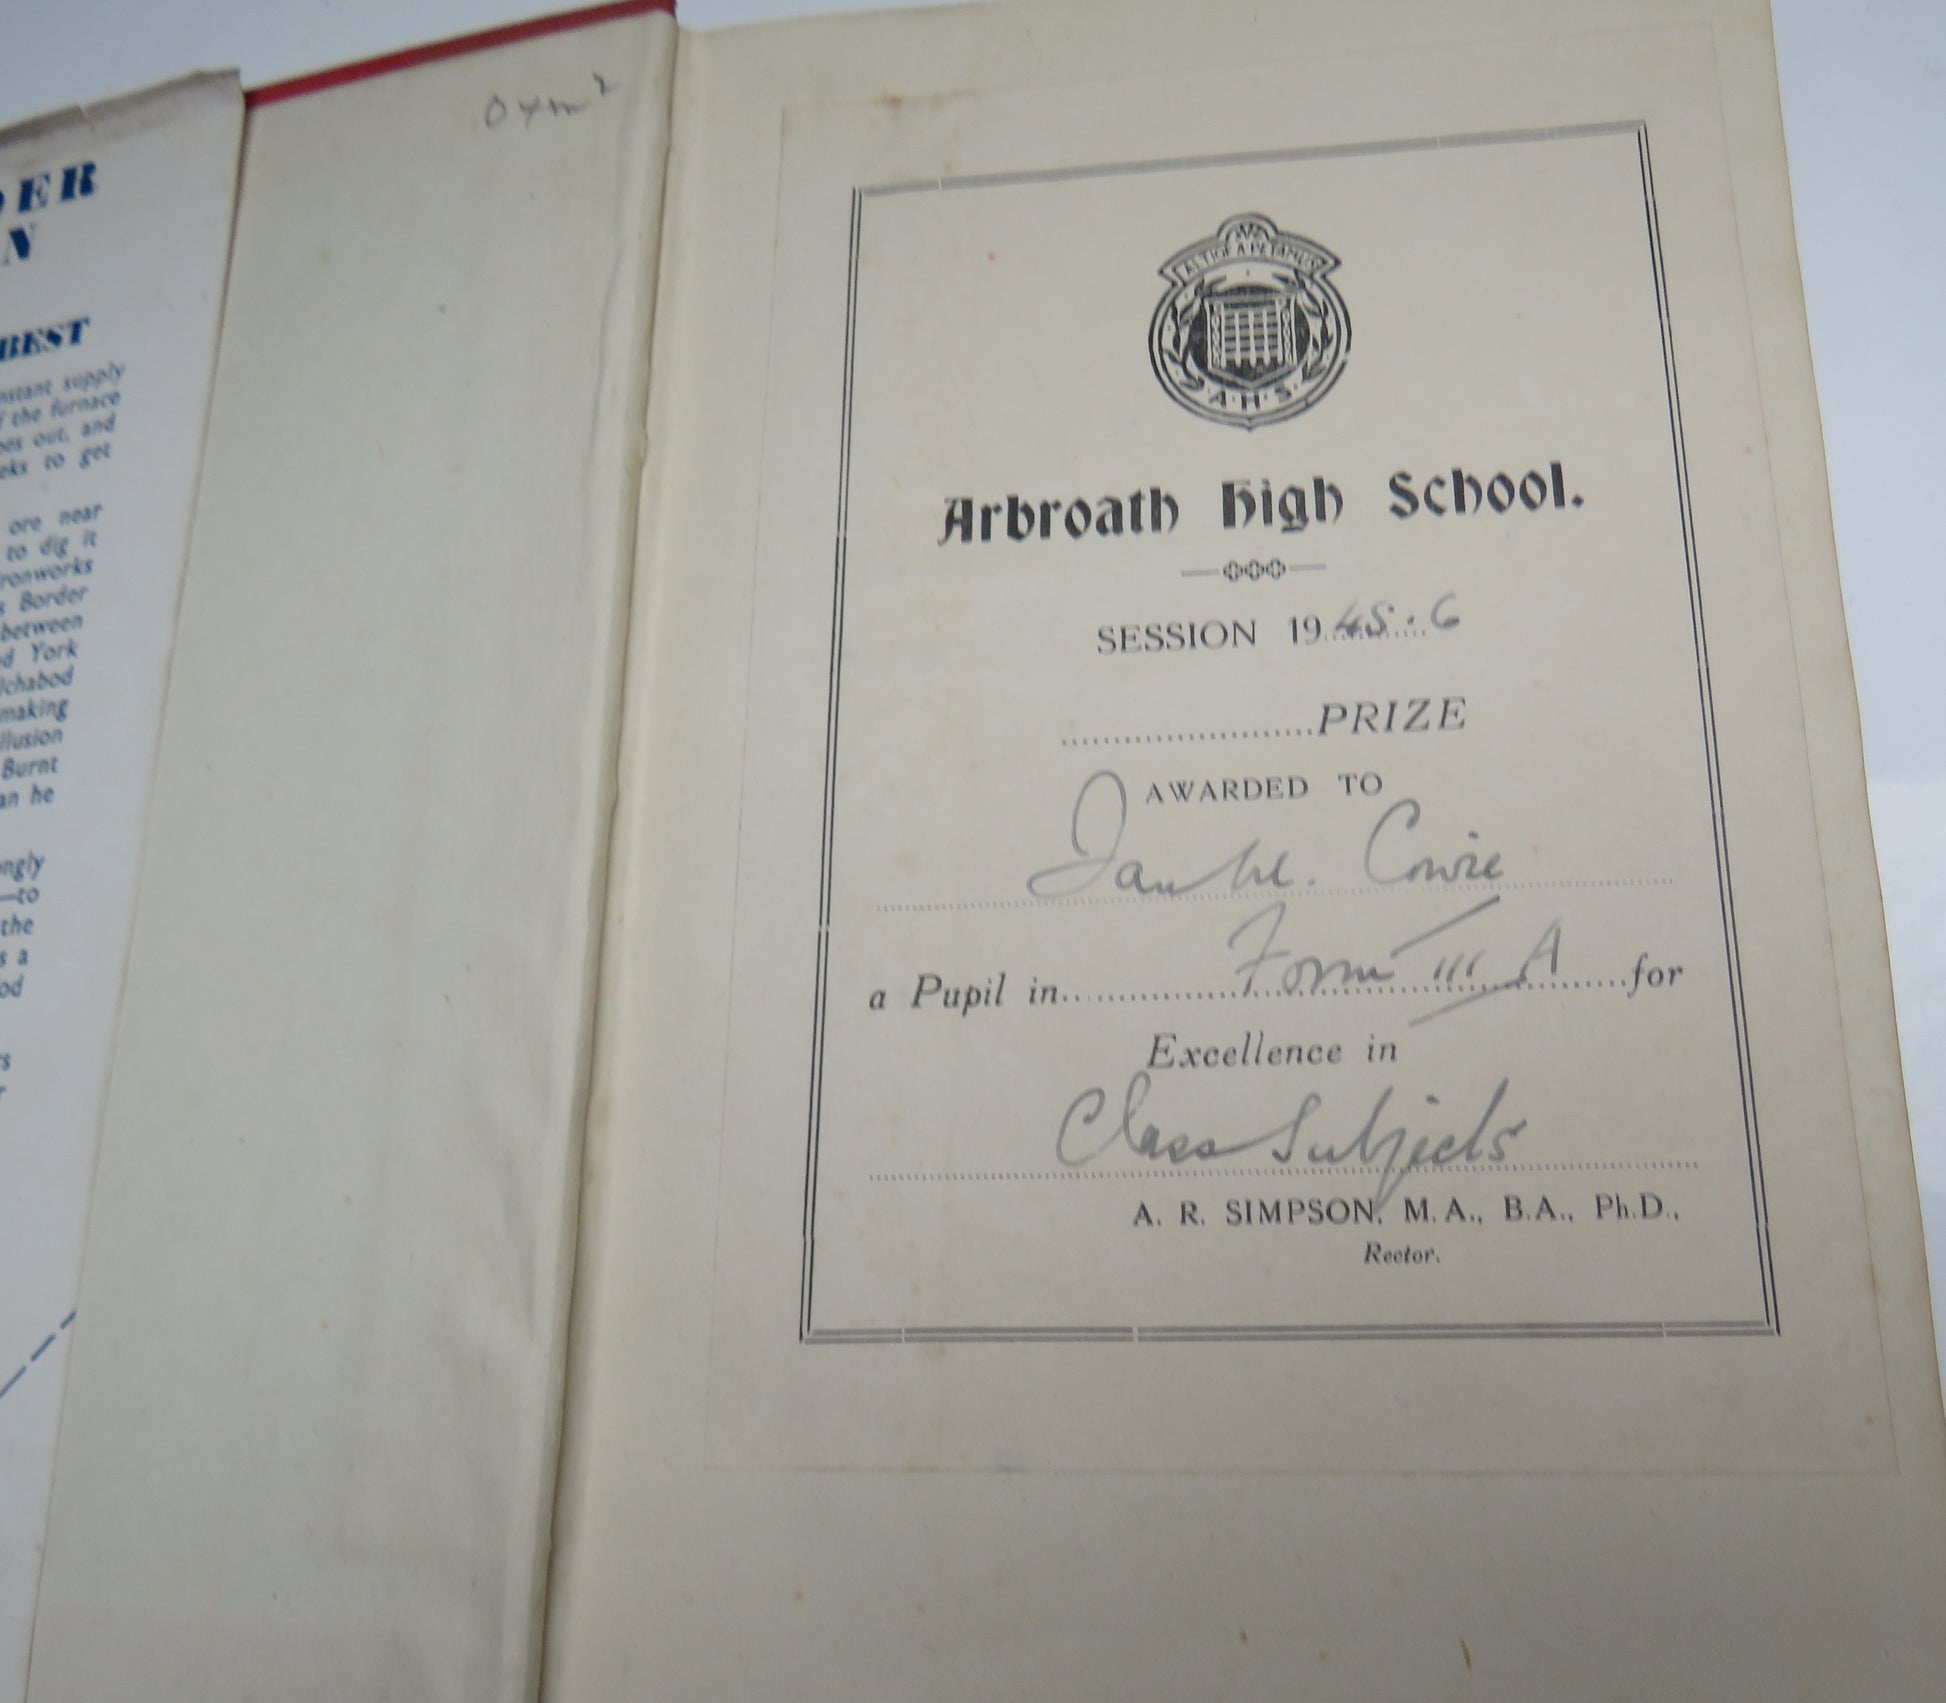 DER
N
BEST
nstant supply
f the furnace
oes out, and
eks to get
ore near
to dig it
ronworks
s Border
between
d York
Ichabod
making
llusion
Burnt
an he
ngly
—to
the
s a
od
rs
r
ALTIORA PETAMUS
A·H·S
Arbroath High School.
SESSION 1945·6
PRIZE
AWARDED TO
Ian M. Cowie
a Pupil in Form III A for
Excellence in
Class Subjects
A. R. SIMPSON, M.A., B.A., Ph.D.,
Rector.